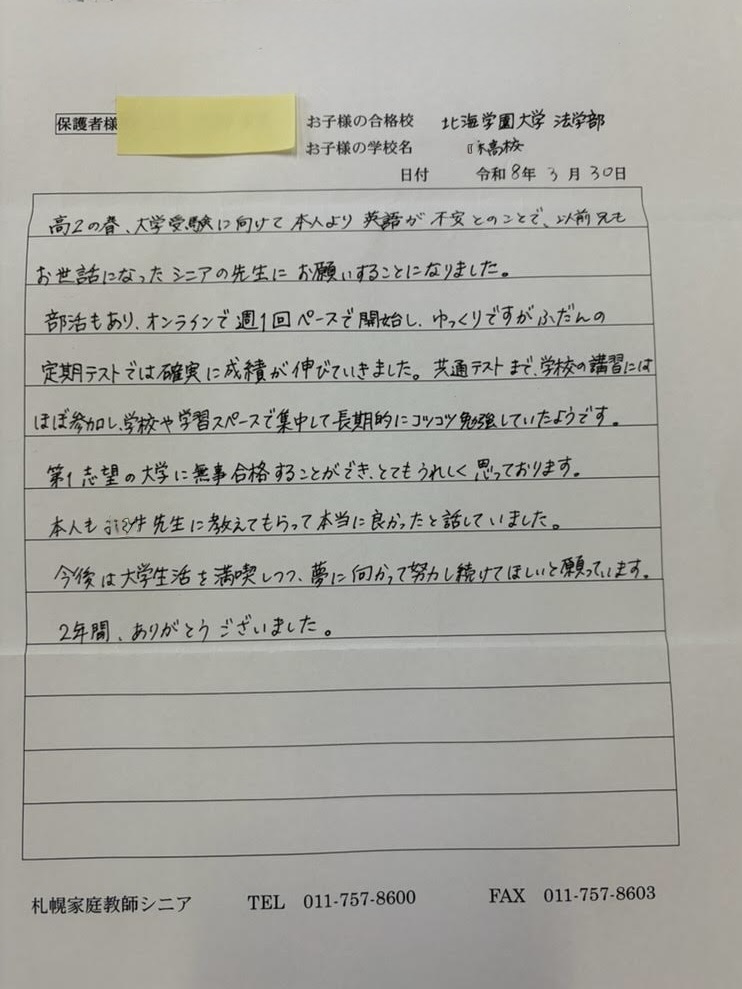 保護者様
お子様の合格校 北海学園大学 法学部
お子様の学校名 高校
日付 令和8年3月30日
高2の春、大学受験に向けて本人より英語が不安とのことで、以前兄も
お世話になったシニアの先生にお願いすることになりました。
部活もあり、オンラインで週1回ペースで開始し、ゆっくりですがふだんの
定期テストでは確実に成績が伸びていきました。共通テストまで、学校の講習には
ほぼ参加し、学校や学習スペースで集中して長期的にコツコツ勉強していたようです。
第1志望の大学に無事合格することができ、とてもうれしく思っております。
本人も 先生に教えてもらって本当に良かったと話していました。
今後は大学生活を満喫しつつ、夢に向かって努力し続けてほしいと願っています。
2年間、ありがとうございました。
札幌家庭教師シニア TEL 011-757-8600 FAX 011-757-8603